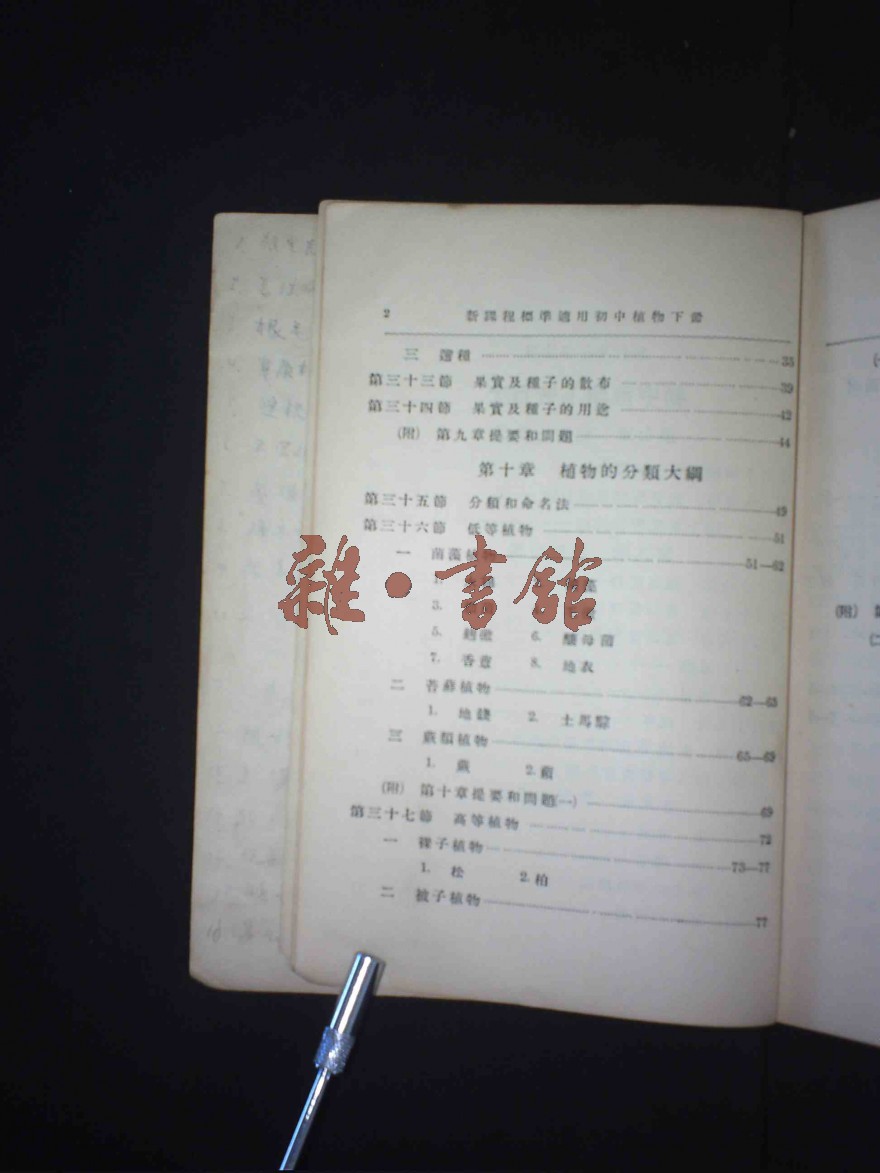 2 新課程標準適用初中植物下冊
三 選種 35
第三十三節 果實及種子的散布 39
第三十四節 果實及種子的用途 42
(附) 第九章提要和問題 44
第十章 植物的分類大綱
第三十五節 分類和命名法 49
第三十六節 低等植物 51
一 菌藻植物 51—62
1. 2.
3.
5. 麴黴 6. 釀母菌
7. 香蕈 8. 地衣
二 苔蘚植物 62—65
1. 地錢 2. 土馬騌
三 蕨類植物 65—69
1. 蕨 2.
(附) 第十章提要和問題(一) 69
第三十七節 高等植物 72
一 裸子植物 73—77
1. 松 2. 柏
二 被子植物 77
雜·書館
(附)
根